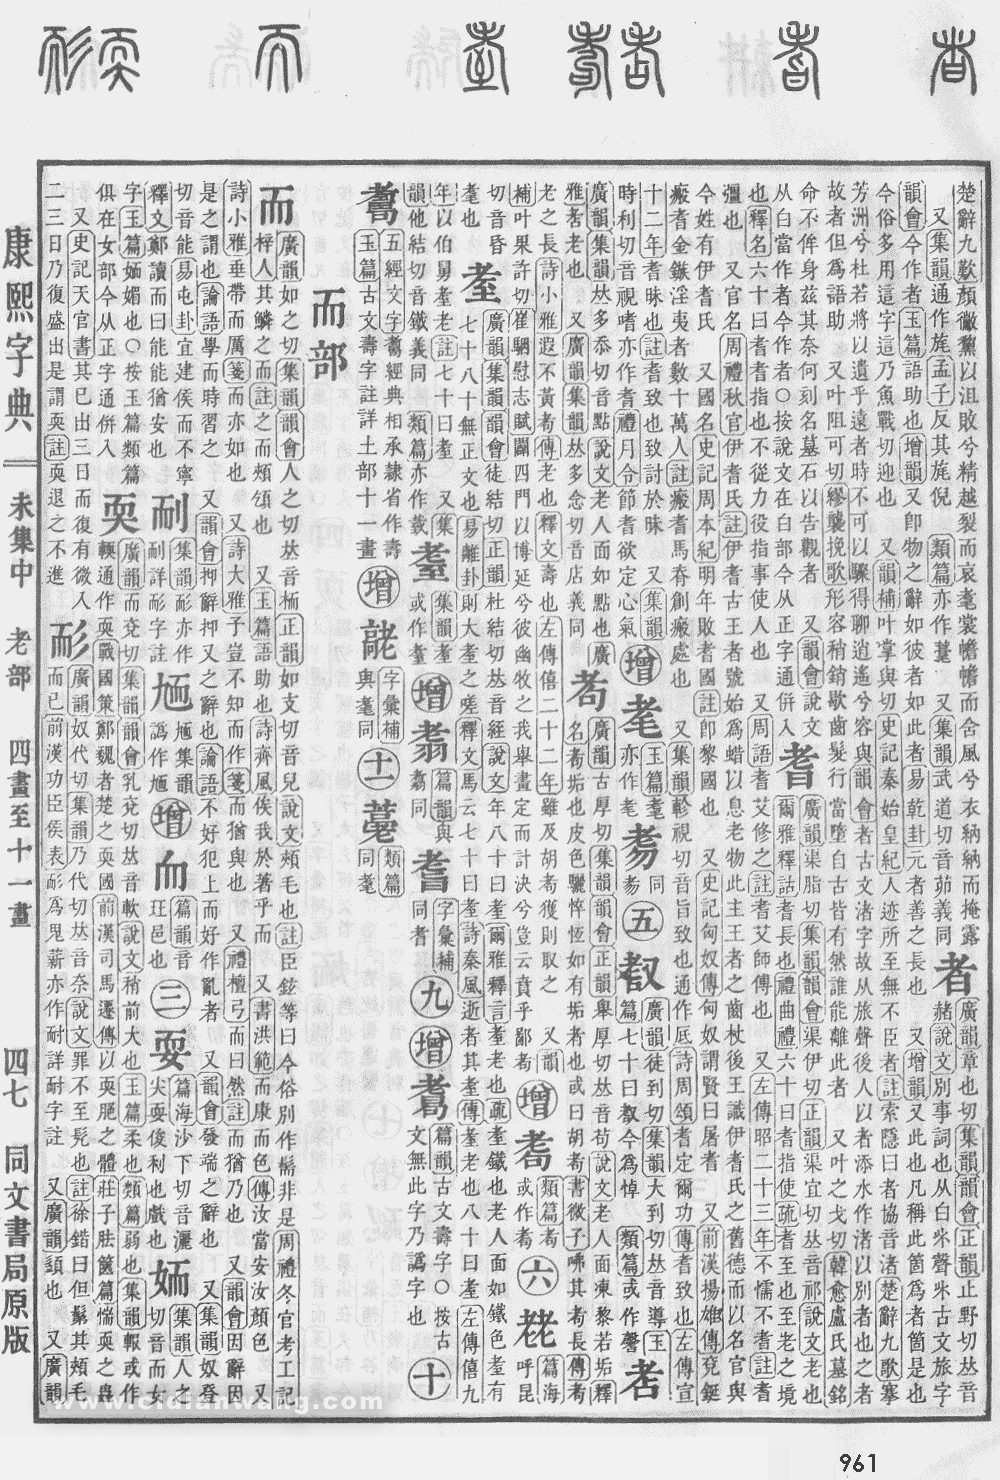 楚辭九歎顏黴黧以沮敗兮精越裂而哀耄裳襜襜而含風兮衣納納而掩露 者 廣韻章也切集韻韻會正韻止野切𠀤音
又集韻通作旄孟子反其旄倪 類篇亦作 又集韻武道切音茆義同 赭說文別事詞也从白 聲 古文旅字
韻會今作者玉篇語助也增韻又卽物之辭如彼者如此者易乾卦元者善之長也 又增韻又此也凡稱此箇爲者箇是也
今俗多用這字這乃魚戰切迎也 又韻補叶掌與切史記秦始皇紀人迹所至無不臣者註索隱曰者協音渚楚辭九歌搴
芳洲兮杜若將以遺乎遠者時不可以驟得聊逍遙兮容與韻會者古文渚字故从旅聲後人以者添水作渚以別也之者
故者但爲語助 又叶阻可切繆襲挽歌形容稍銷歇齒髮行當墮自古皆有然誰能離此者 又叶之戈切韓愈盧氏墓銘
命不侔身茲其奈何刻名墓石以告觀者 韻會說文从白當作者今作者○按說文在白部今从正字通倂入 耆 廣韻渠脂切集韻韻會渠伊切正韻渠宜切𠀤音祁說文老也
爾雅釋詁耆長也禮曲禮六十曰耆指使疏耆至也至老之境也釋名六十曰耆耆指也不從力役指事使人也 又周語耆艾修之註耆艾師傅也 又左傳昭二十三年不懦不耆註耆
彊也 又官名周禮秋官伊耆氏註伊耆古王者號始爲蜡以息老物此主王者之齒杖後王識伊耆氏之舊德而以名官與
今姓有伊耆氏 又國名史記周本紀明年敗耆國註卽黎國也 又史記匈奴傳匈奴謂賢曰屠耆 又前漢揚雄傳兗鋋
瘢耆金鏃淫夷者數十萬人註瘢耆馬脊創瘢處也 又集韻軫視切音旨致也通作厎詩周頌耆定爾功傳耆致也左傳宣
十二年耆昧也註耆致也致討於昧 又集韻時利切音視嗜亦作耆禮月令節耆欲定心氣
增 老 玉篇耄亦作老 同耇 五 廣韻徒到切集韻大到切𠀤音導玉篇七十曰 今爲悼 類篇或作
廣韻集韻𠀤多忝切音點說文老人面如點也廣雅耆老也 又廣韻集韻𠀤多念切音店義同
耇 廣韻古厚切集韻韻會正韻舉厚切𠀤音苟說文老人面凍黎若垢釋名耇垢也皮色驪悴恆如有垢者也或曰胡耇書微子咈其耇長傳耇
老之長詩小雅遐不黃耇傳老也釋文壽也左傳僖二十二年雖及胡耇獲則取之 又韻補叶果許切崔駰慰志賦闢四門以博延兮彼幽牧之我舉畫定而計決兮豈云賁乎鄙耇
增 類篇耇或作耈 六 篇海呼昆切音昏耄也
耋 廣韻集韻韻會徒結切正韻杜結切𠀤音絰說文年八十曰耋爾雅釋言耋老也疏耋鐵也老人面如鐵色耋有
七十八十無正文也易離卦則大耋之嗟釋文馬云七十曰耋詩秦風逝者其耋傳耋老也八十曰耋左傳僖九
年以伯舅耋老註七十曰耋 又集韻他結切音鐵義同 類篇亦作
集韻耋或作 增 篇韻與 同 字彙補同耆 九 增 篇韻古文壽字○按古文無此字乃譌字也 十
五經文字 經典相承隷省作壽玉篇古文壽字註詳土部十一畫 增 字彙補與耄同 十一 類篇同耄
而部
而 廣韻如之切集韻韻會人之切𠀤音栭正韻如支切音兒說文頰毛也註臣鉉等曰今俗別作髵非是周禮冬官考工記
梓人其鱗之而註之而頰頌也 又玉篇語助也詩齊風俟我於著乎而 又書洪範而康而色傳汝當安汝顏色 又
詩小雅垂帶而厲箋而亦如也 又詩大雅子豈不知而作箋而猶與也 又禮檀弓而曰然註而猶乃也 又韻會因辭因
是之謂也論語學而時習之 又韻會抑辭抑又之辭也論語不好犯上而好作亂者 又韻會發端之辭也 又集韻奴登
切音能易屯卦宜建侯而不寧釋文鄭讀而曰能能猶安也
耐 集韻耏亦作耐詳耏字註 集韻 譌作 增 篇韻音 邑也 三 耍 篇海沙下切音灑尖耍俊利也戲也 集韻人之切音而女
字玉篇 媚也○按玉篇類篇俱在女部今从正字通倂入
耎 廣韻而兗切集韻韻會乳兗切𠀤音軟說文稍前大也玉篇柔也類篇弱也集韻輭或作
輭通作耎戰國策鄭魏者楚之耎國前漢司馬遷傳以耎脃之體莊子胠篋篇惴耎之蟲
又史記天官書其已出三日而復有微入入
二三日乃復盛出是謂耎註耎退之不進
耏 廣韻奴代切集韻乃代切𠀤音柰說文罪不至髡也註徐鍇曰但鬄其頰毛
而已前漢功臣侯表耏爲鬼薪亦作耐詳耐字註 又廣韻頦也 又廣韻
康熙字典
未集中 老部 四畫至十一畫
四七 同文書局原版
www.cidianwang.com
961